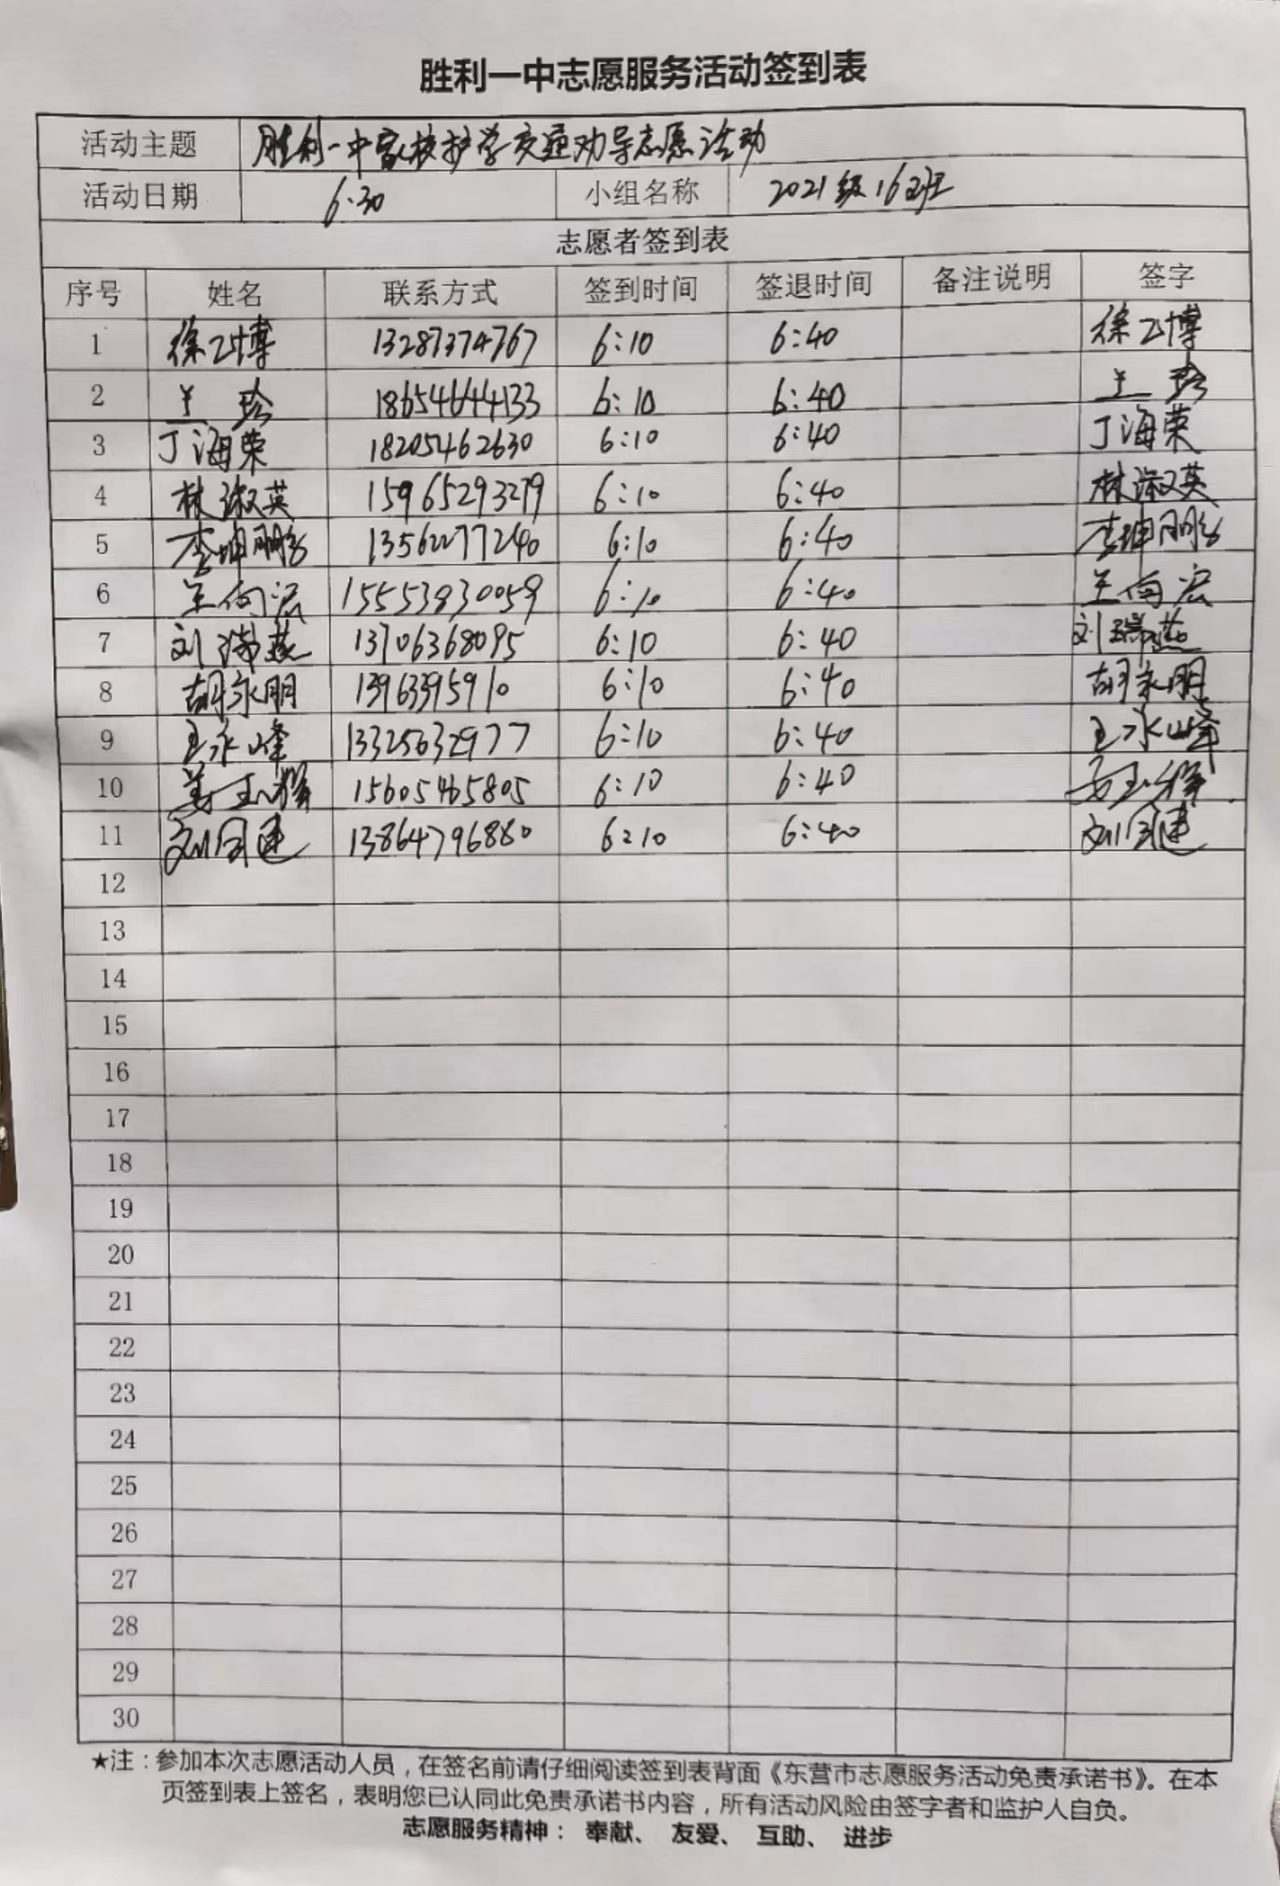 胜利一中志愿服务活动签到表
活动主题 胜利一中家校护学交通劝导志愿活动
活动日期 6.30 小组名称 2021级16班
志愿者签到表
序号 姓名 联系方式 签到时间 签退时间 备注说明 签字
1 徐乙博 13287374767 6:10 6:40 徐乙博
2 王珍 18654644133 6:10 6:40 王珍
3 丁海荣 18205462630 6:10 6:40 丁海荣
4 林淑英 15965293279 6:10 6:40 林淑英
5 李坤鹏 13562277240 6:10 6:40 李坤鹏
6 王向宏 15553930059 6:10 6:40 王向宏
7 刘瑞燕 13706368095 6:10 6:40 刘瑞燕
8 胡永朋 1396395910 6:10 6:40 胡永朋
9 王永峰 13325632977 6:10 6:40 王永峰
10 姜玉 15605465805 6:10 6:40 姜玉
11 刘国建 13864796880 6:10 6:40 刘国建
12
13
14
15
16
17
18
19
20
21
22
23
24
25
26
27
28
29
30
★注：参加本次志愿活动人员，在签名前请仔细阅读签到表背面《东营市志愿服务活动免责承诺书》。在本
页签到表上签名，表明您已认同此免责承诺书内容，所有活动风险由签字者和监护人自负。
志愿服务精神： 奉献、 友爱、 互助、 进步